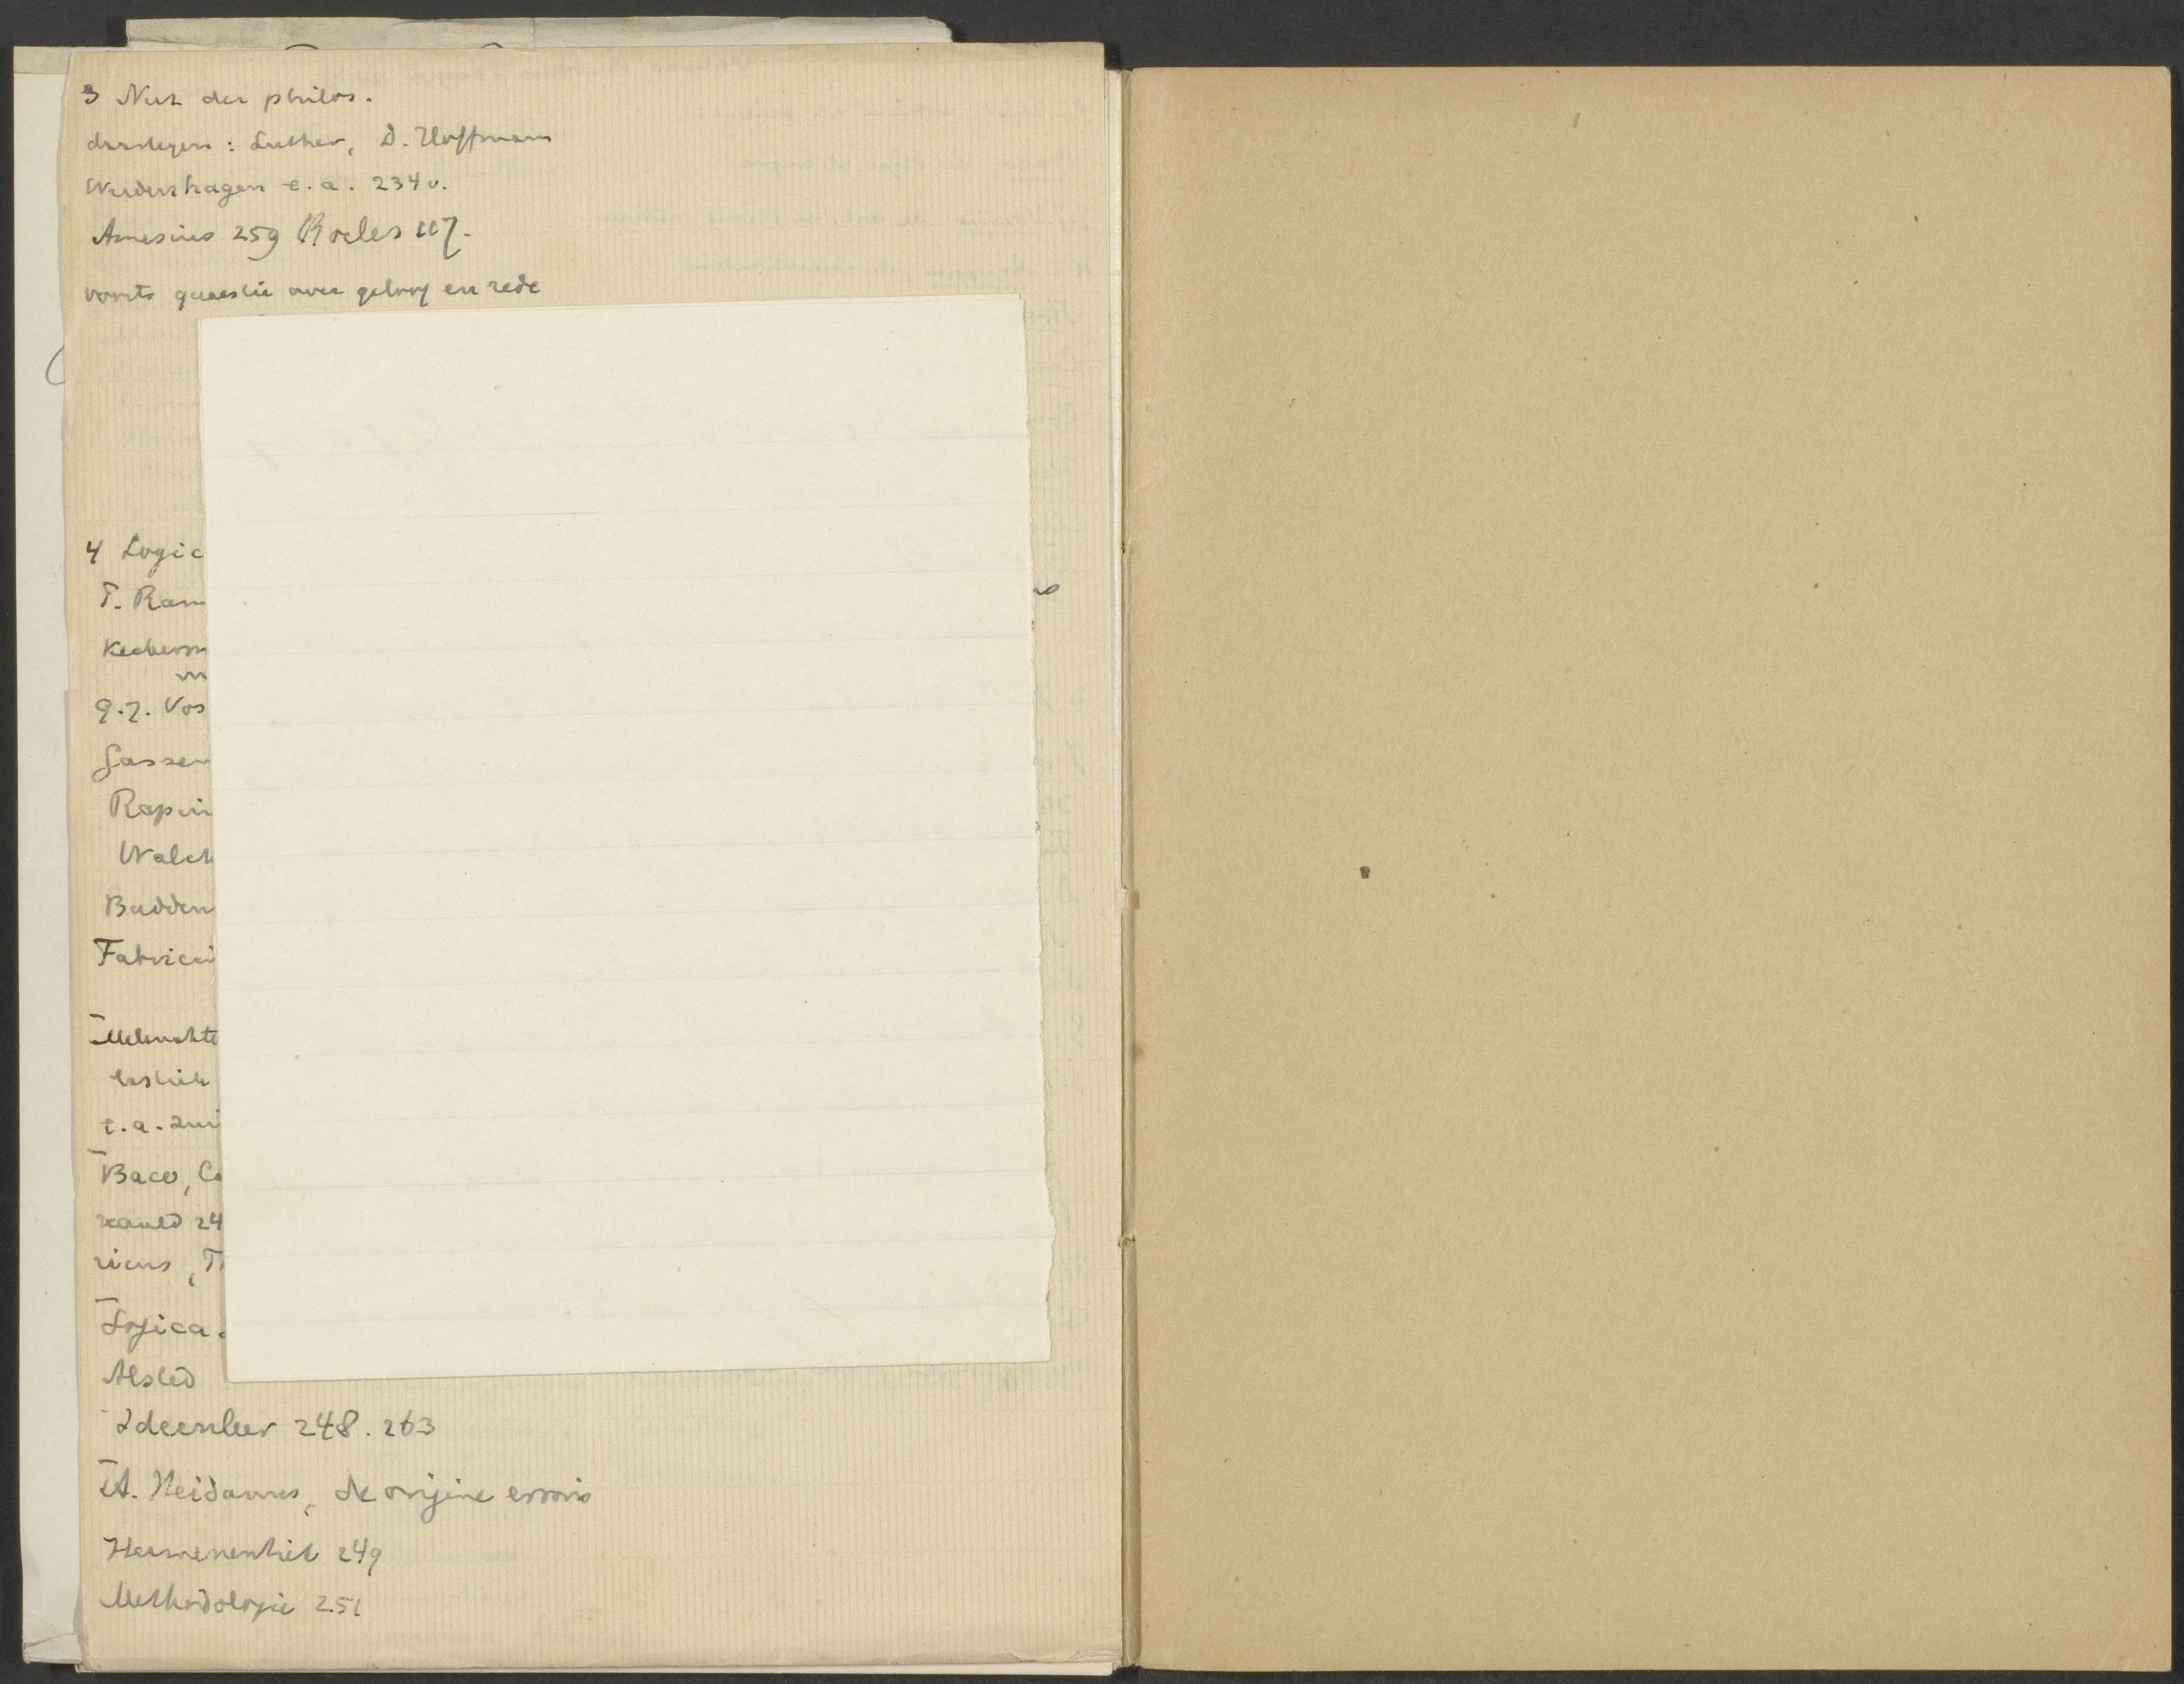 3 Nut der philos.
daartegen: Luther, D. Hoffmann
Werdenhagen e.a. 234v.
Amesius 259 Roeles 117.
voorts quaestie over geloof en rede
4 Logic
P. Ram
Keckerm
G.J. Vos
Gassen
Rapin
Walch
Budden
Fabrici
Melanchte
t.a. zui
Baco, Ca
24
ricus, T
Logica.
Alsted
Ideenleer 248. 263
A. Heidanus, de origine erroris
Hermeneutiek 249
Methodologie 251